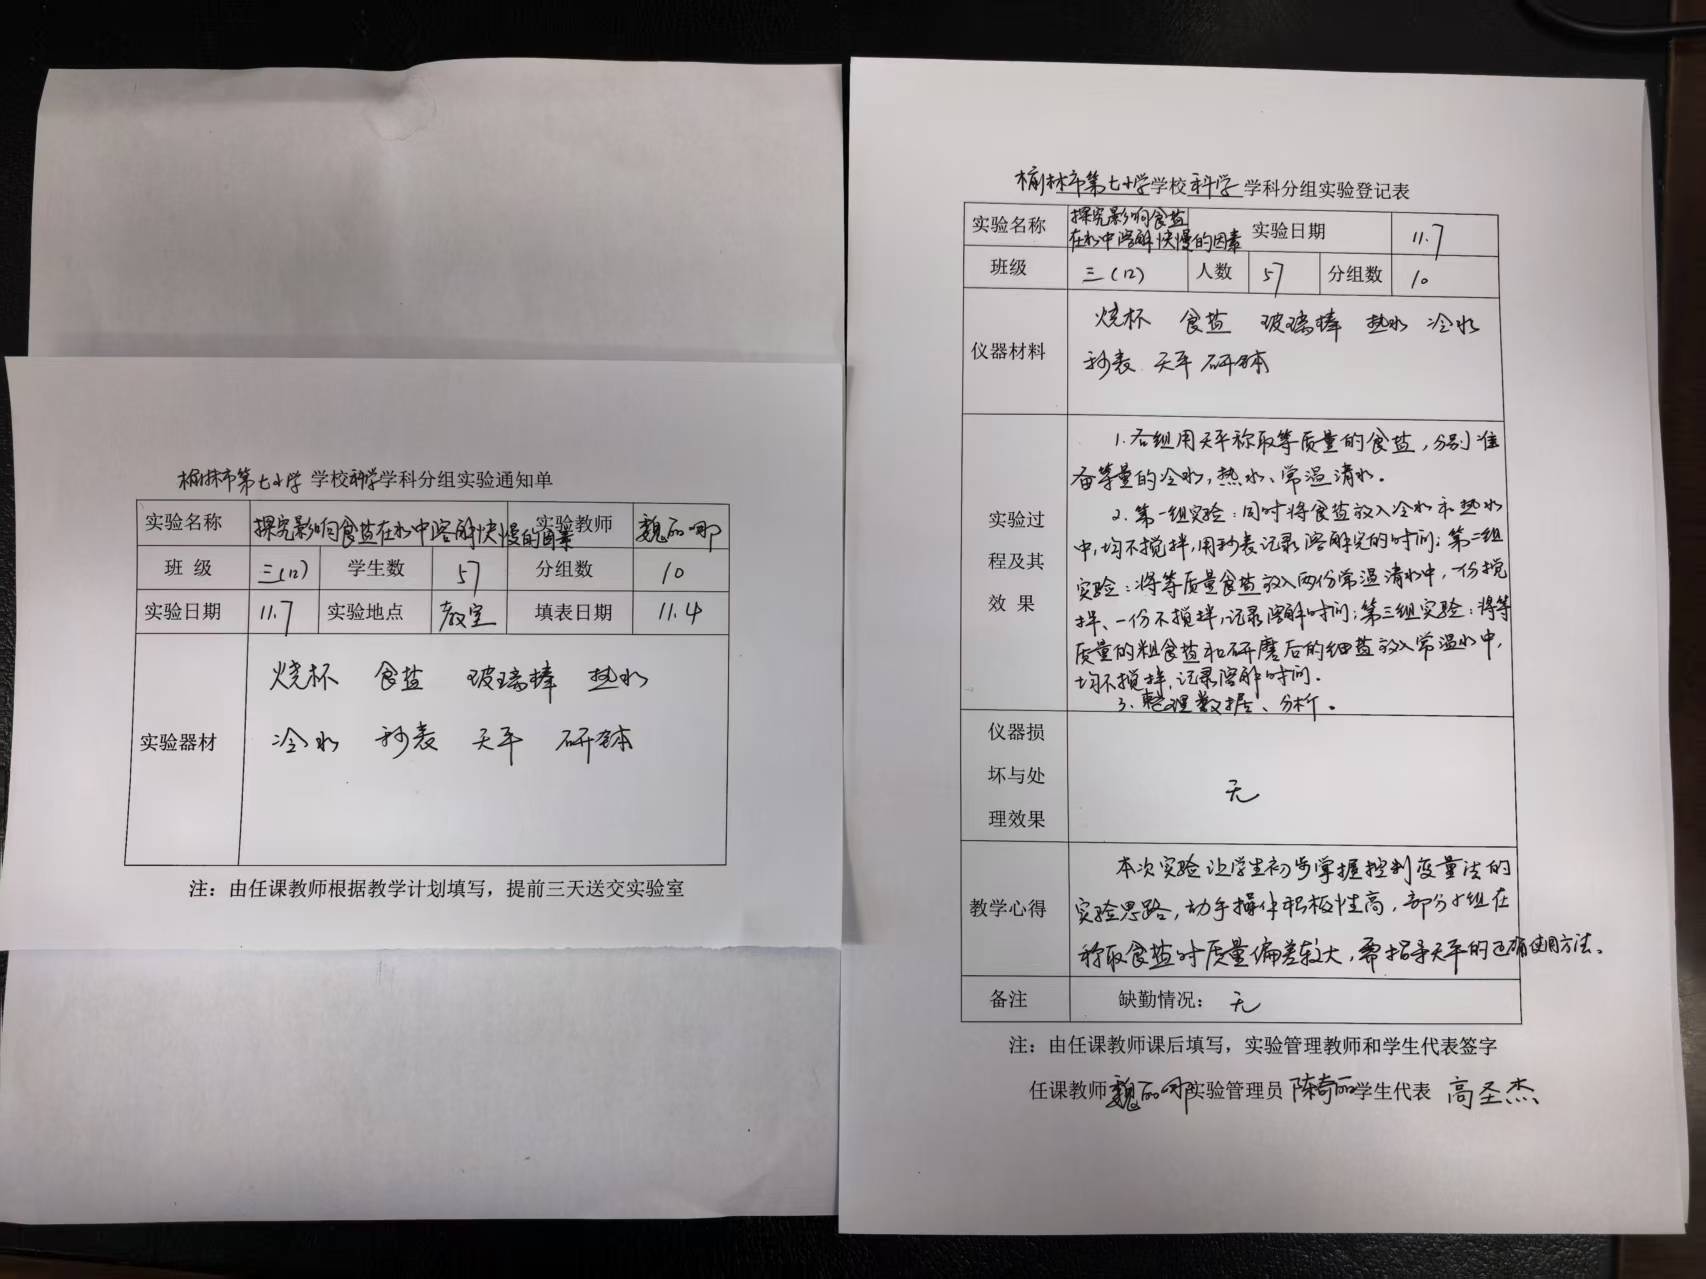 榆林市第七小学 学校科学学科分组实验通知单
实验名称 探究影响食盐在水中溶解快慢的因素 实验教师 魏丽娜
班 级 三(12) 学生数 57 分组数 10
实验日期 11.7 实验地点 教室 填表日期 11.4
烧杯 食盐 玻璃棒 热水
实验器材
冷水 秒表 天平 研钵
注：由任课教师根据教学计划填写，提前三天送交实验室
榆林市第七小学学校科学学科分组实验登记表
实验名称 探究影响食盐
在水中溶解快慢的因素 实验日期 11.7
班级 三(12) 人数 57 分组数 10
仪器材料
烧杯 食盐 玻璃棒 热水 冷水
秒表 天平 研钵
实验过
程及其
效 果
1.各组用天平称取等质量的食盐，分别准
备等量的冷水，热水、常温清水。
2.第一组实验：同时将食盐放入冷水和热水
中，均不搅拌，用秒表记录溶解完的时间；第二组
实验：将等质量食盐放入两份常温清水中，一份搅
拌、一份不搅拌，记录溶解时间；第三组实验：将等
质量的粗食盐和研磨后的细盐放入常温水中，
均不搅拌，记录溶解时间。
3.整理数据、分析。
仪器损
坏与处
理效果
无
教学心得
本次实验让学生初步掌握控制变量法的
实验思路，动手操作积极性高，部分小组在
称取食盐时质量偏差较大，需指导天平的正确使用方法。
备注 缺勤情况： 无
注：由任课教师课后填写，实验管理教师和学生代表签字
任课教师 魏丽娜 实验管理员 陈奇丽 学生代表 高圣杰